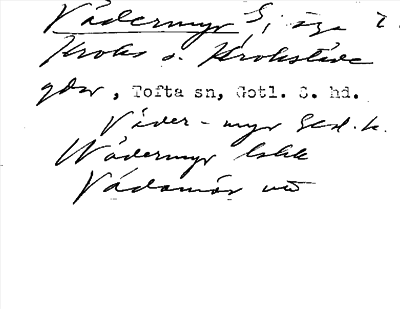 Vädermyr S; äga t.
Kroks o. Krokstäde
gdar, Tofta sn, Gotl. S. hd.
Väder-myr Gsd. k.
Wädermyr lskk
Vädamör utt